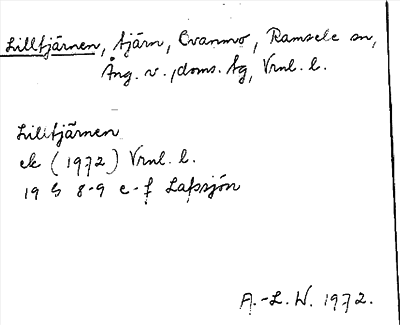 Lilltjärnen, tjärn, Evanmo, Ramsele sn,
Ång. v., doms. tg, Vrnl. l.
Lilltjärnen
ek (1972) Vrnl. l.
19 G 8-9 e-f Lafssjön
A.-L. W. 1972.